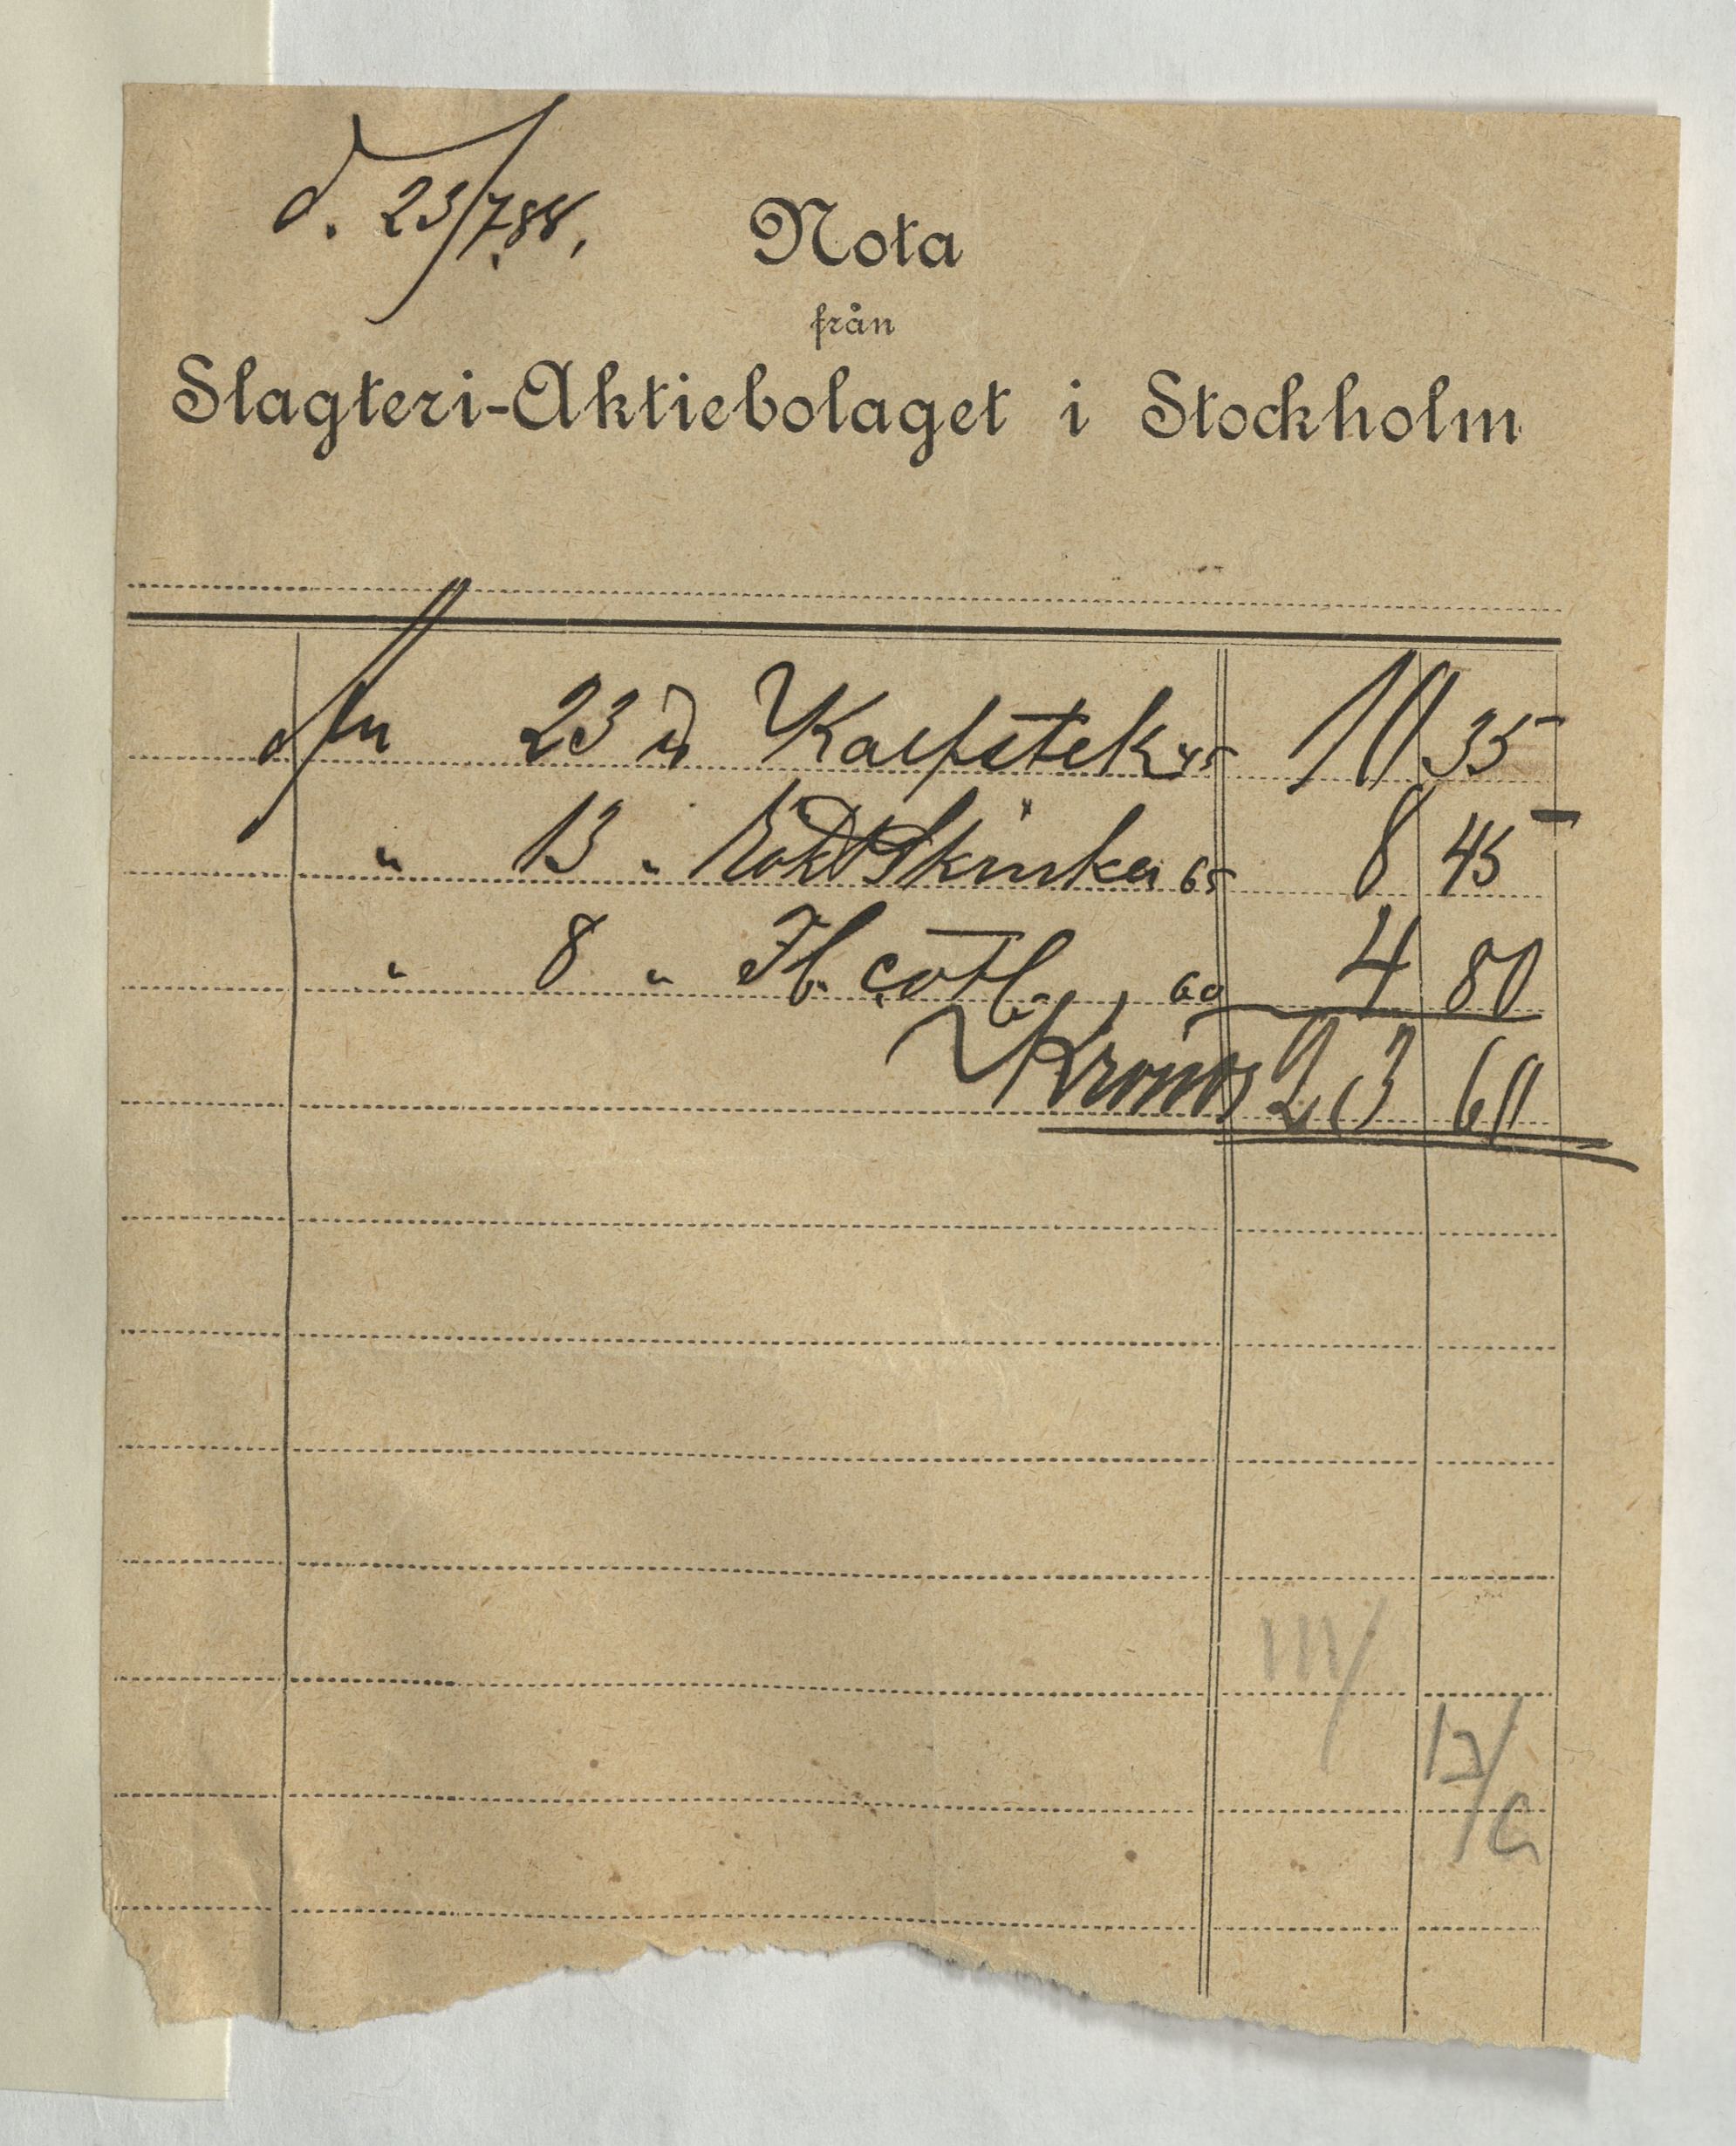 d. 23/7.88.
Nota
från
Slagteri-Aktiebolaget i Stockholm
An 23 ℔ Kalfstek 45 10 35
" 13 " Rökt Skinka 65 8 45
" 8 " Fb. cotl. 60 4 80
Kronor 23 60
III/
12/